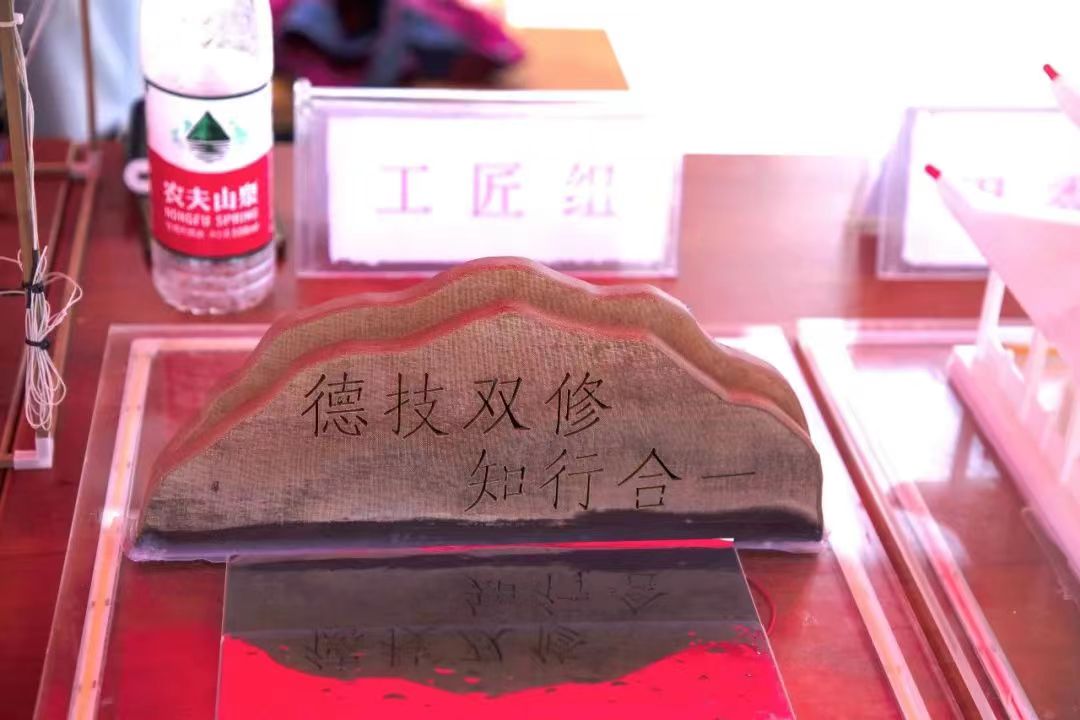 农夫山泉
NONGFU SPRING
工匠组
德技双修
知行合一